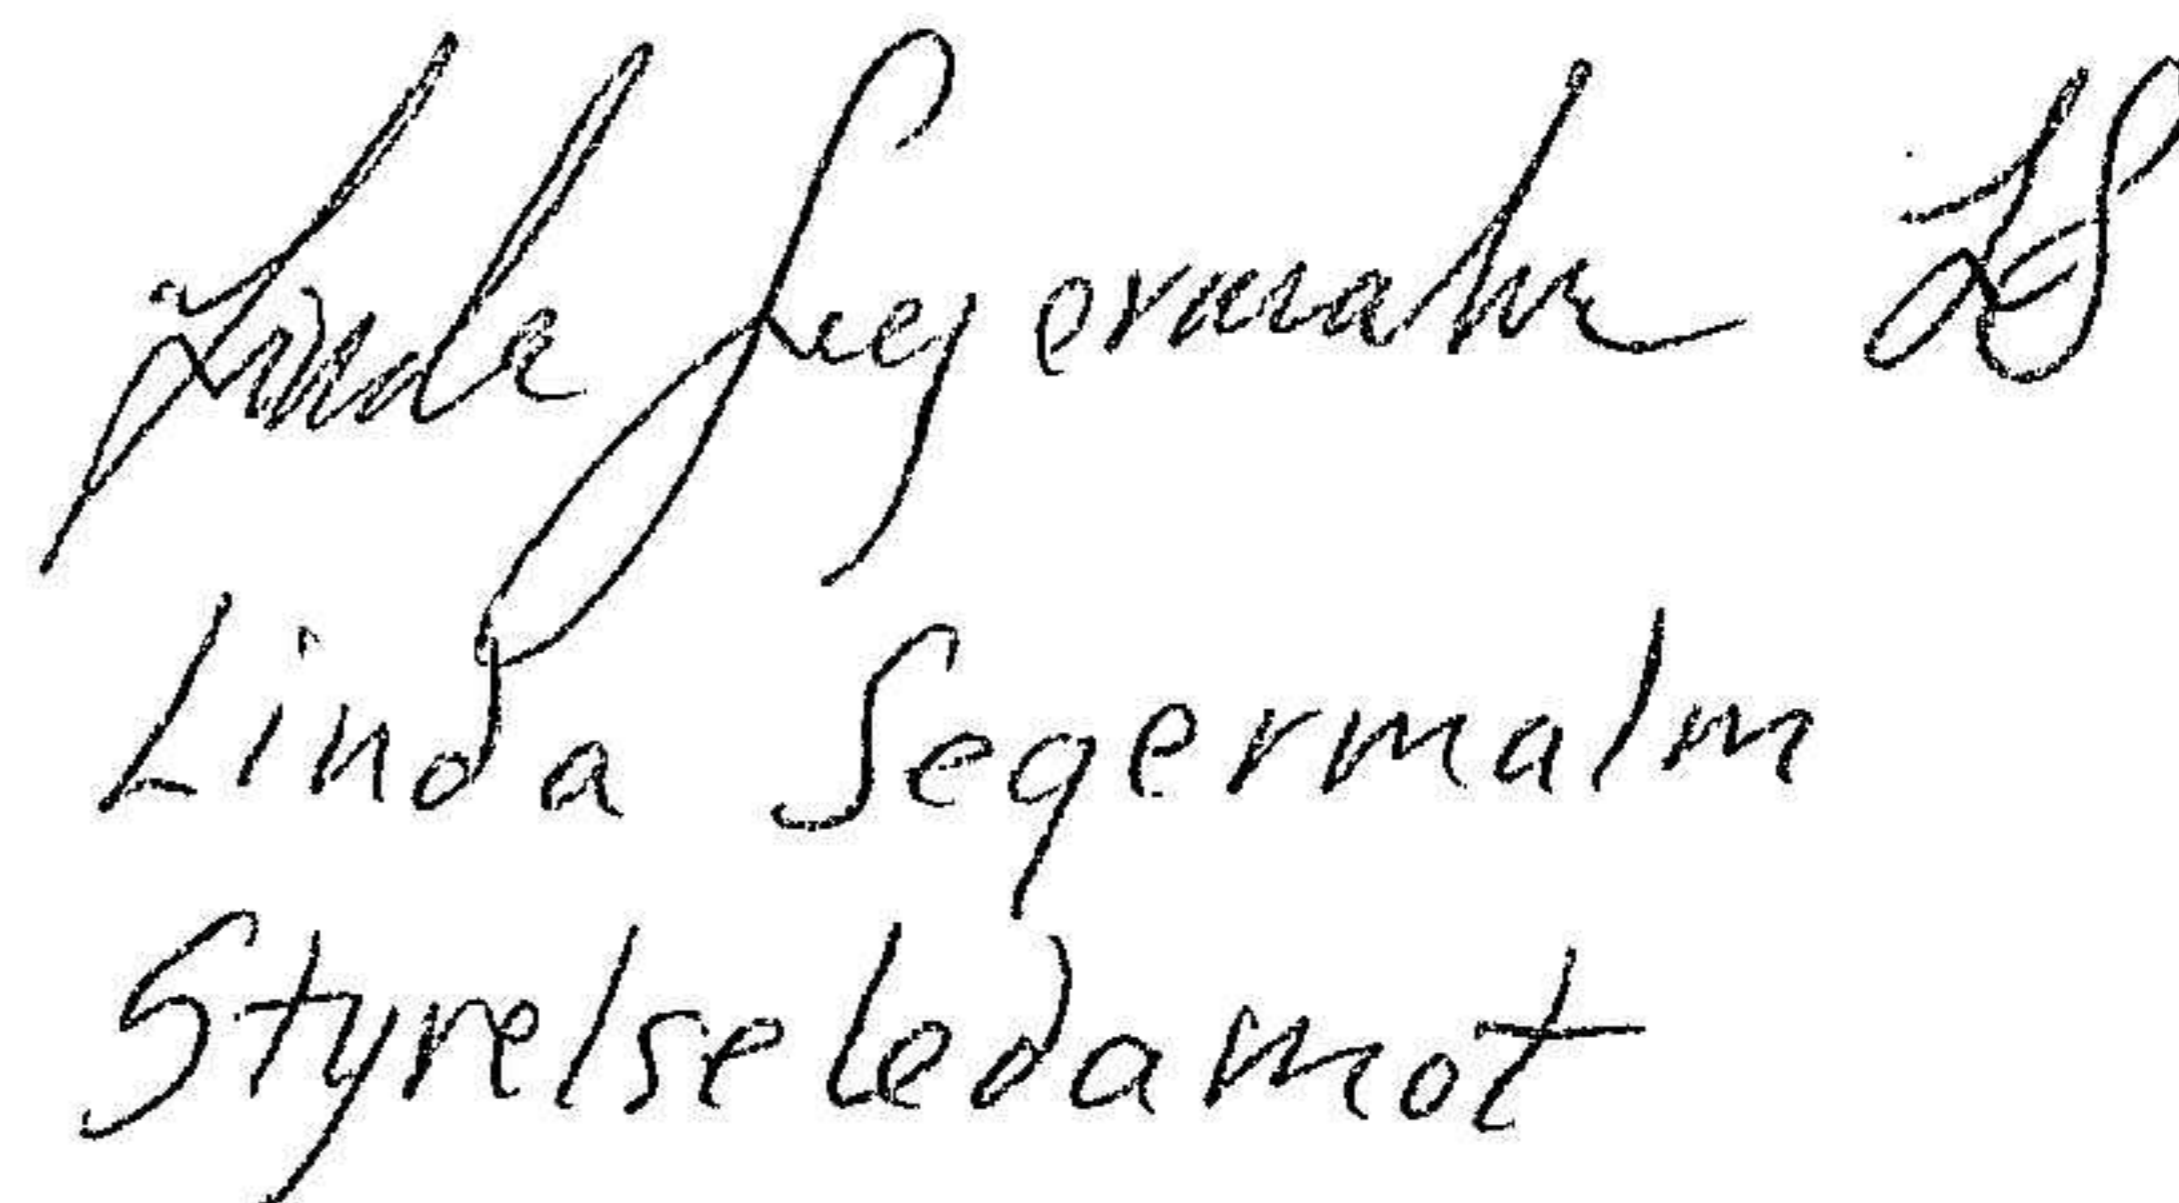 Linda Segermalm LS
Linda Segermalm
Styrelseledamot